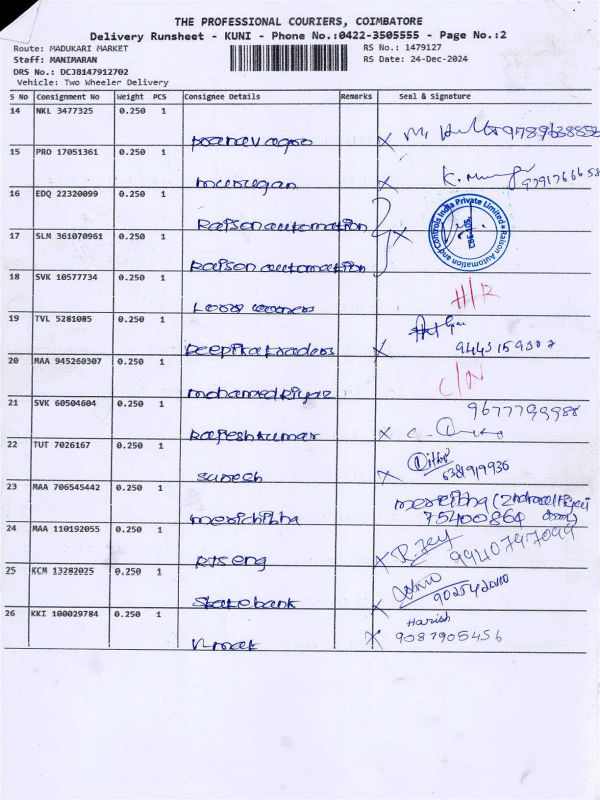 THE PROFESSIONAL COURIERS, COIMBATORE
Delivery Runsheet - KUNI - Phone No.:0422-3505555 - Page No.:2
Route: MADUKARI MARKET RS No.: 1479127
Staff: MANIMARAN RS Date: 24-Dec-2024
DRS No.: DCJB147912702
Vehicle: Two Wheeler Delivery
S No Consignment No Weight PCS Consignee Details Remarks Seal & Signature
14 NKL 3477325 0.250 1
X M.
15 PRO 17051361 0.250 1
murugan X K. 9791766658
16 EDQ 22320099 0.250 1
Raison automation
Raison Automation and Controls India Private Limited
CBE-562
17 SLM 361070961 0.250 1 X
Raison automation
18 SVK 10577734 0.250 1
H/R
19 TVL 5281085 0.250 1
Deepika traders X 9443159302
20 MAA 945260307 0.250 1
mohamed Riyaz C/N
21 SVK 60504604 0.250 1 9677799988
Rajesh kumar X
22 TUT 7026167 0.250 1
suresh X 6381919936
23 MAA 706545442 0.250 1
75400864
24 MAA 110192055 0.250 1
RTS eng X R. Jey 9940797099
25 KCM 13282025 0.250 1
State bank X 9025420110
26 KKI 100029784 0.250 1 Harish
V-mak X 9087905456